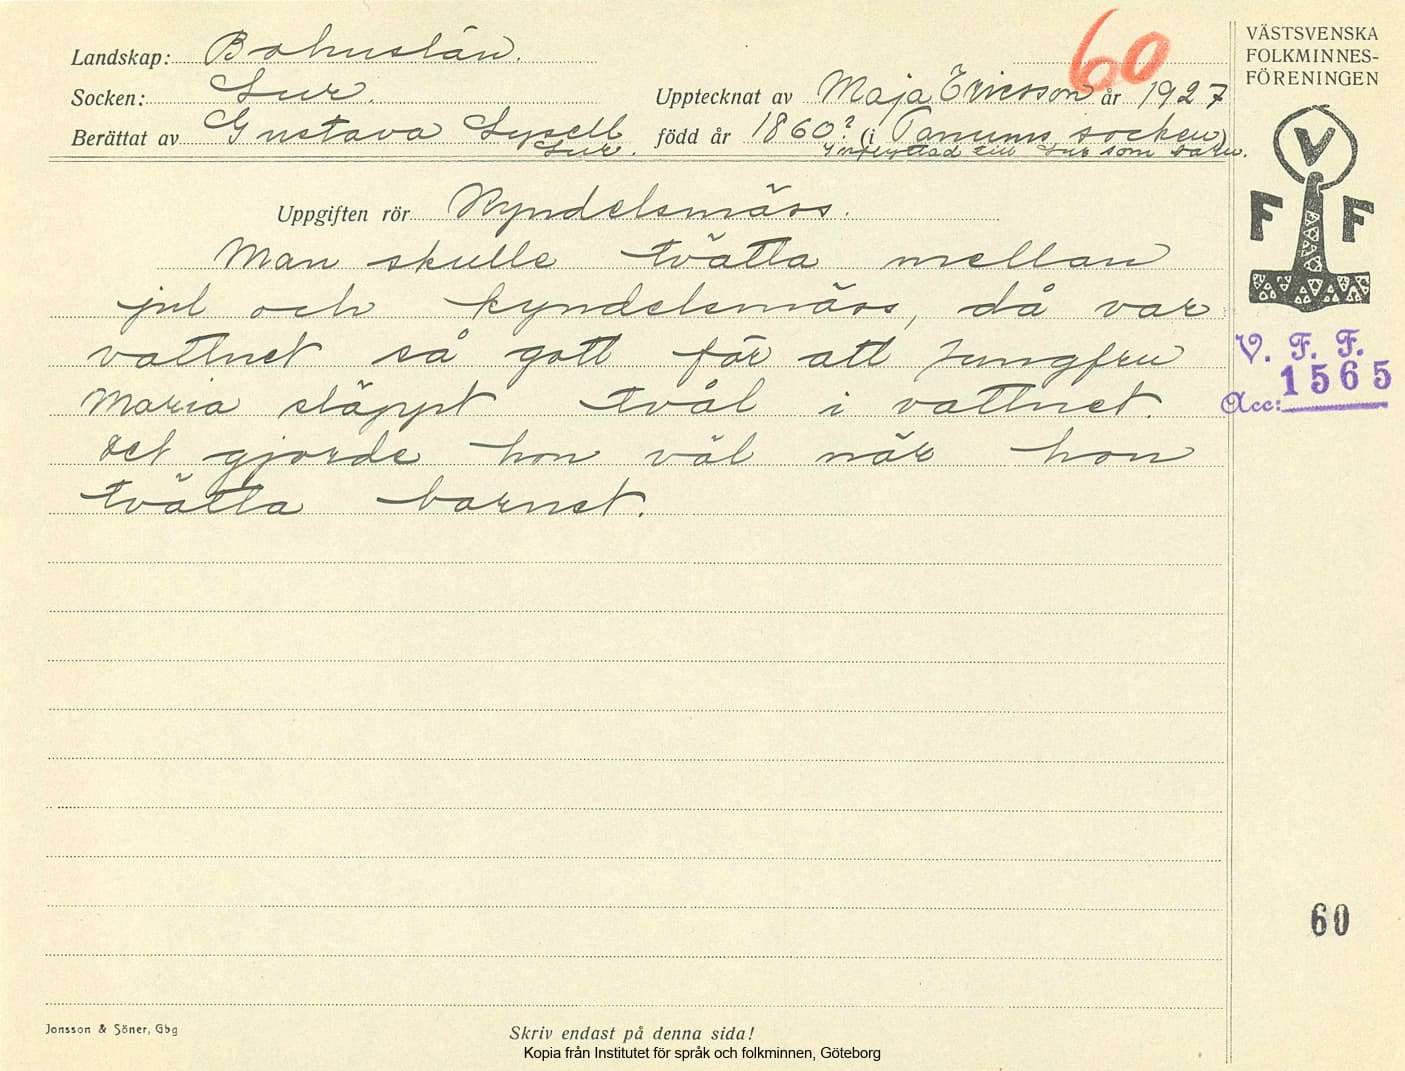 60
Landskap: Bohuslän.
Socken: Lur.
Upptecknat av Maja Ericsson år 1927
Berättat av Gustava Lysell
Lur.
född år 1860? (i Tanums socken)
Inflyttad till Lur som barn.
Uppgiften rör Kyndelsmäss.
Man skulle tvätta mellan
jul och kyndelsmäss, då var
vattnet så gott för att Jungfru
Maria släppt tvål i vattnet.
Det gjorde hon väl när hon
tvätta barnet.
VÄSTSVENSKA
FOLKMINNES-
FÖRENINGEN
V
F F
V. F. F.
Acc: 1565
60
Jonsson & Söner, Gbg
Skriv endast på denna sida!
Kopia från Institutet för språk och folkminnen, Göteborg